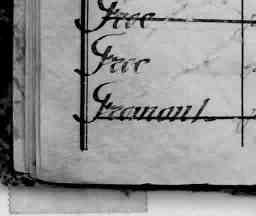 Free
Free
Fremont